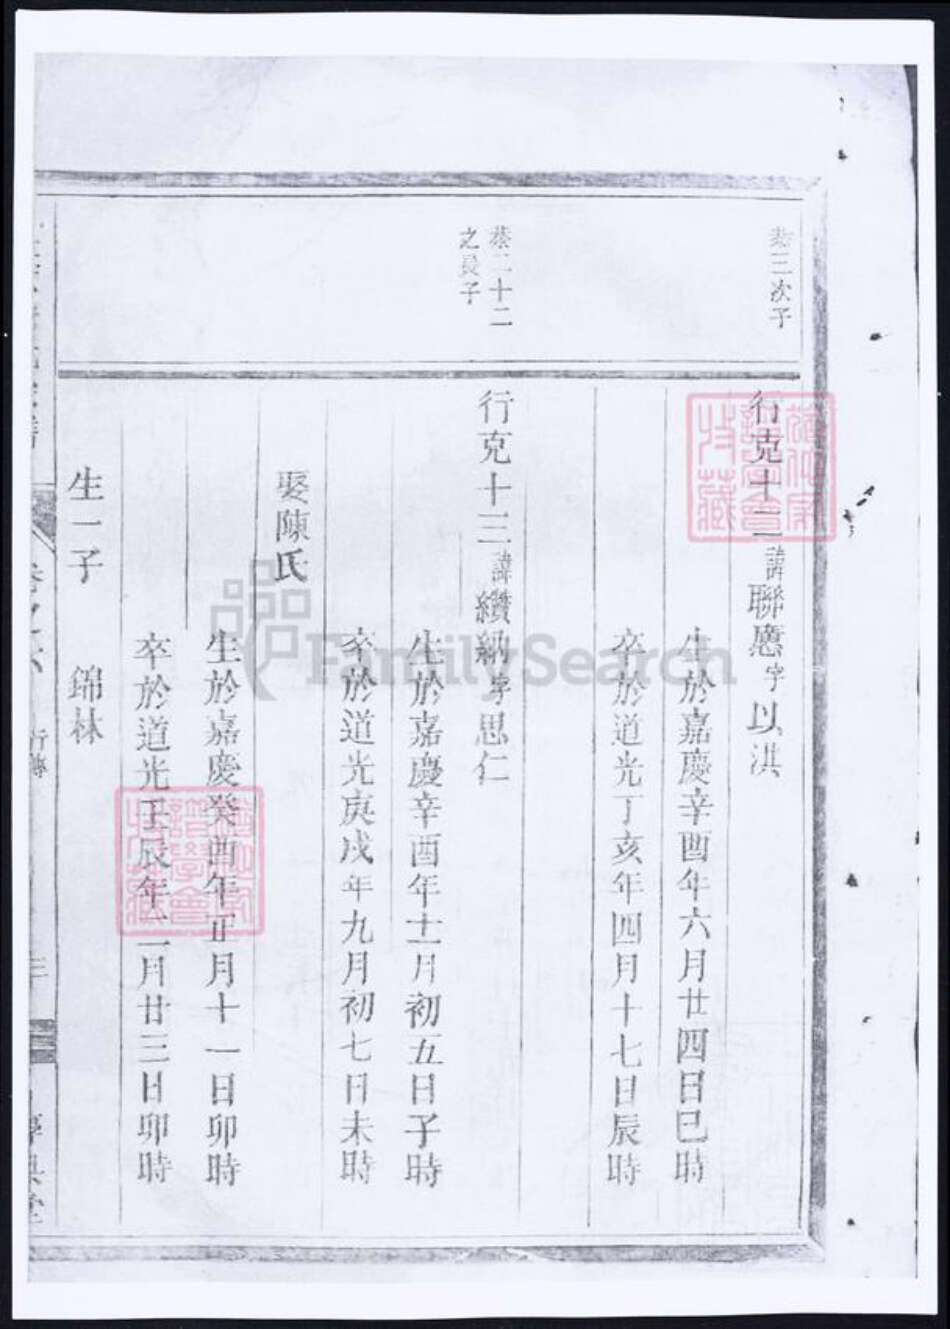 恭三次子
行克十二諱聯應字以洪
生於嘉慶辛酉年六月廿四日巳時
卒於道光丁亥年四月十七日辰時
恭二十二
之長子
行克十三諱纘納字思仁
生於嘉慶辛酉年十一月初五日子時
卒於道光庚戌年九月初七日未時
娶陳氏
生於嘉慶癸酉年正月十一日卯時
卒於道光壬辰年二月廿三日卯時
生一子 錦林
行傳
FamilySearch